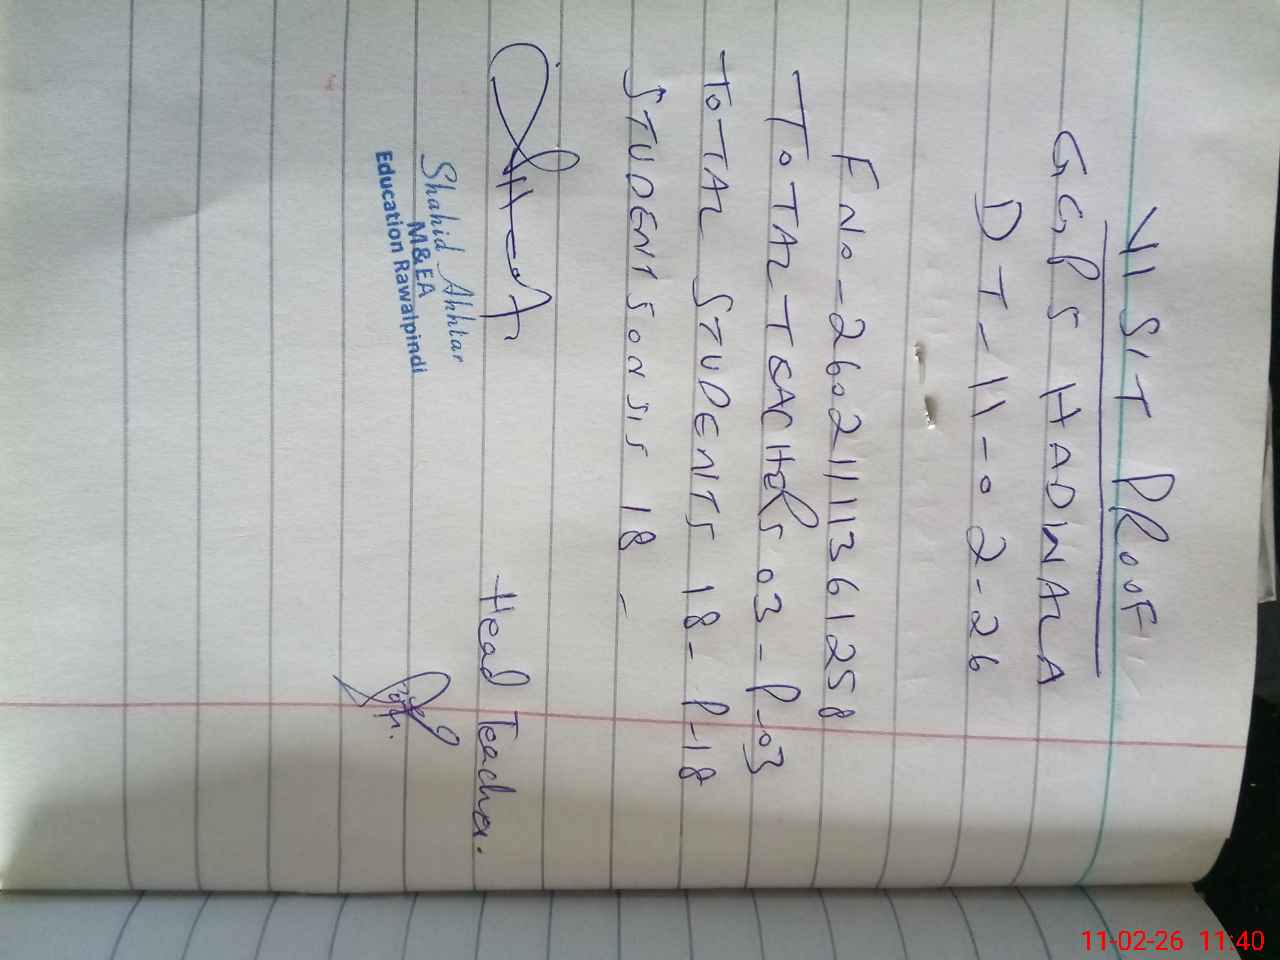 VISIT PROOF
GGPS HADWALA
DT-11-02-26
FNo-2602111361258
TOTAL TEACHERS 03-P-03
TOTAL STUDENTS 18-P-18
STUDENTS ON SIS 18-
Head Teacher.
Shahid Akhtar
M&EA
Education Rawalpindi
11-02-26 11:40